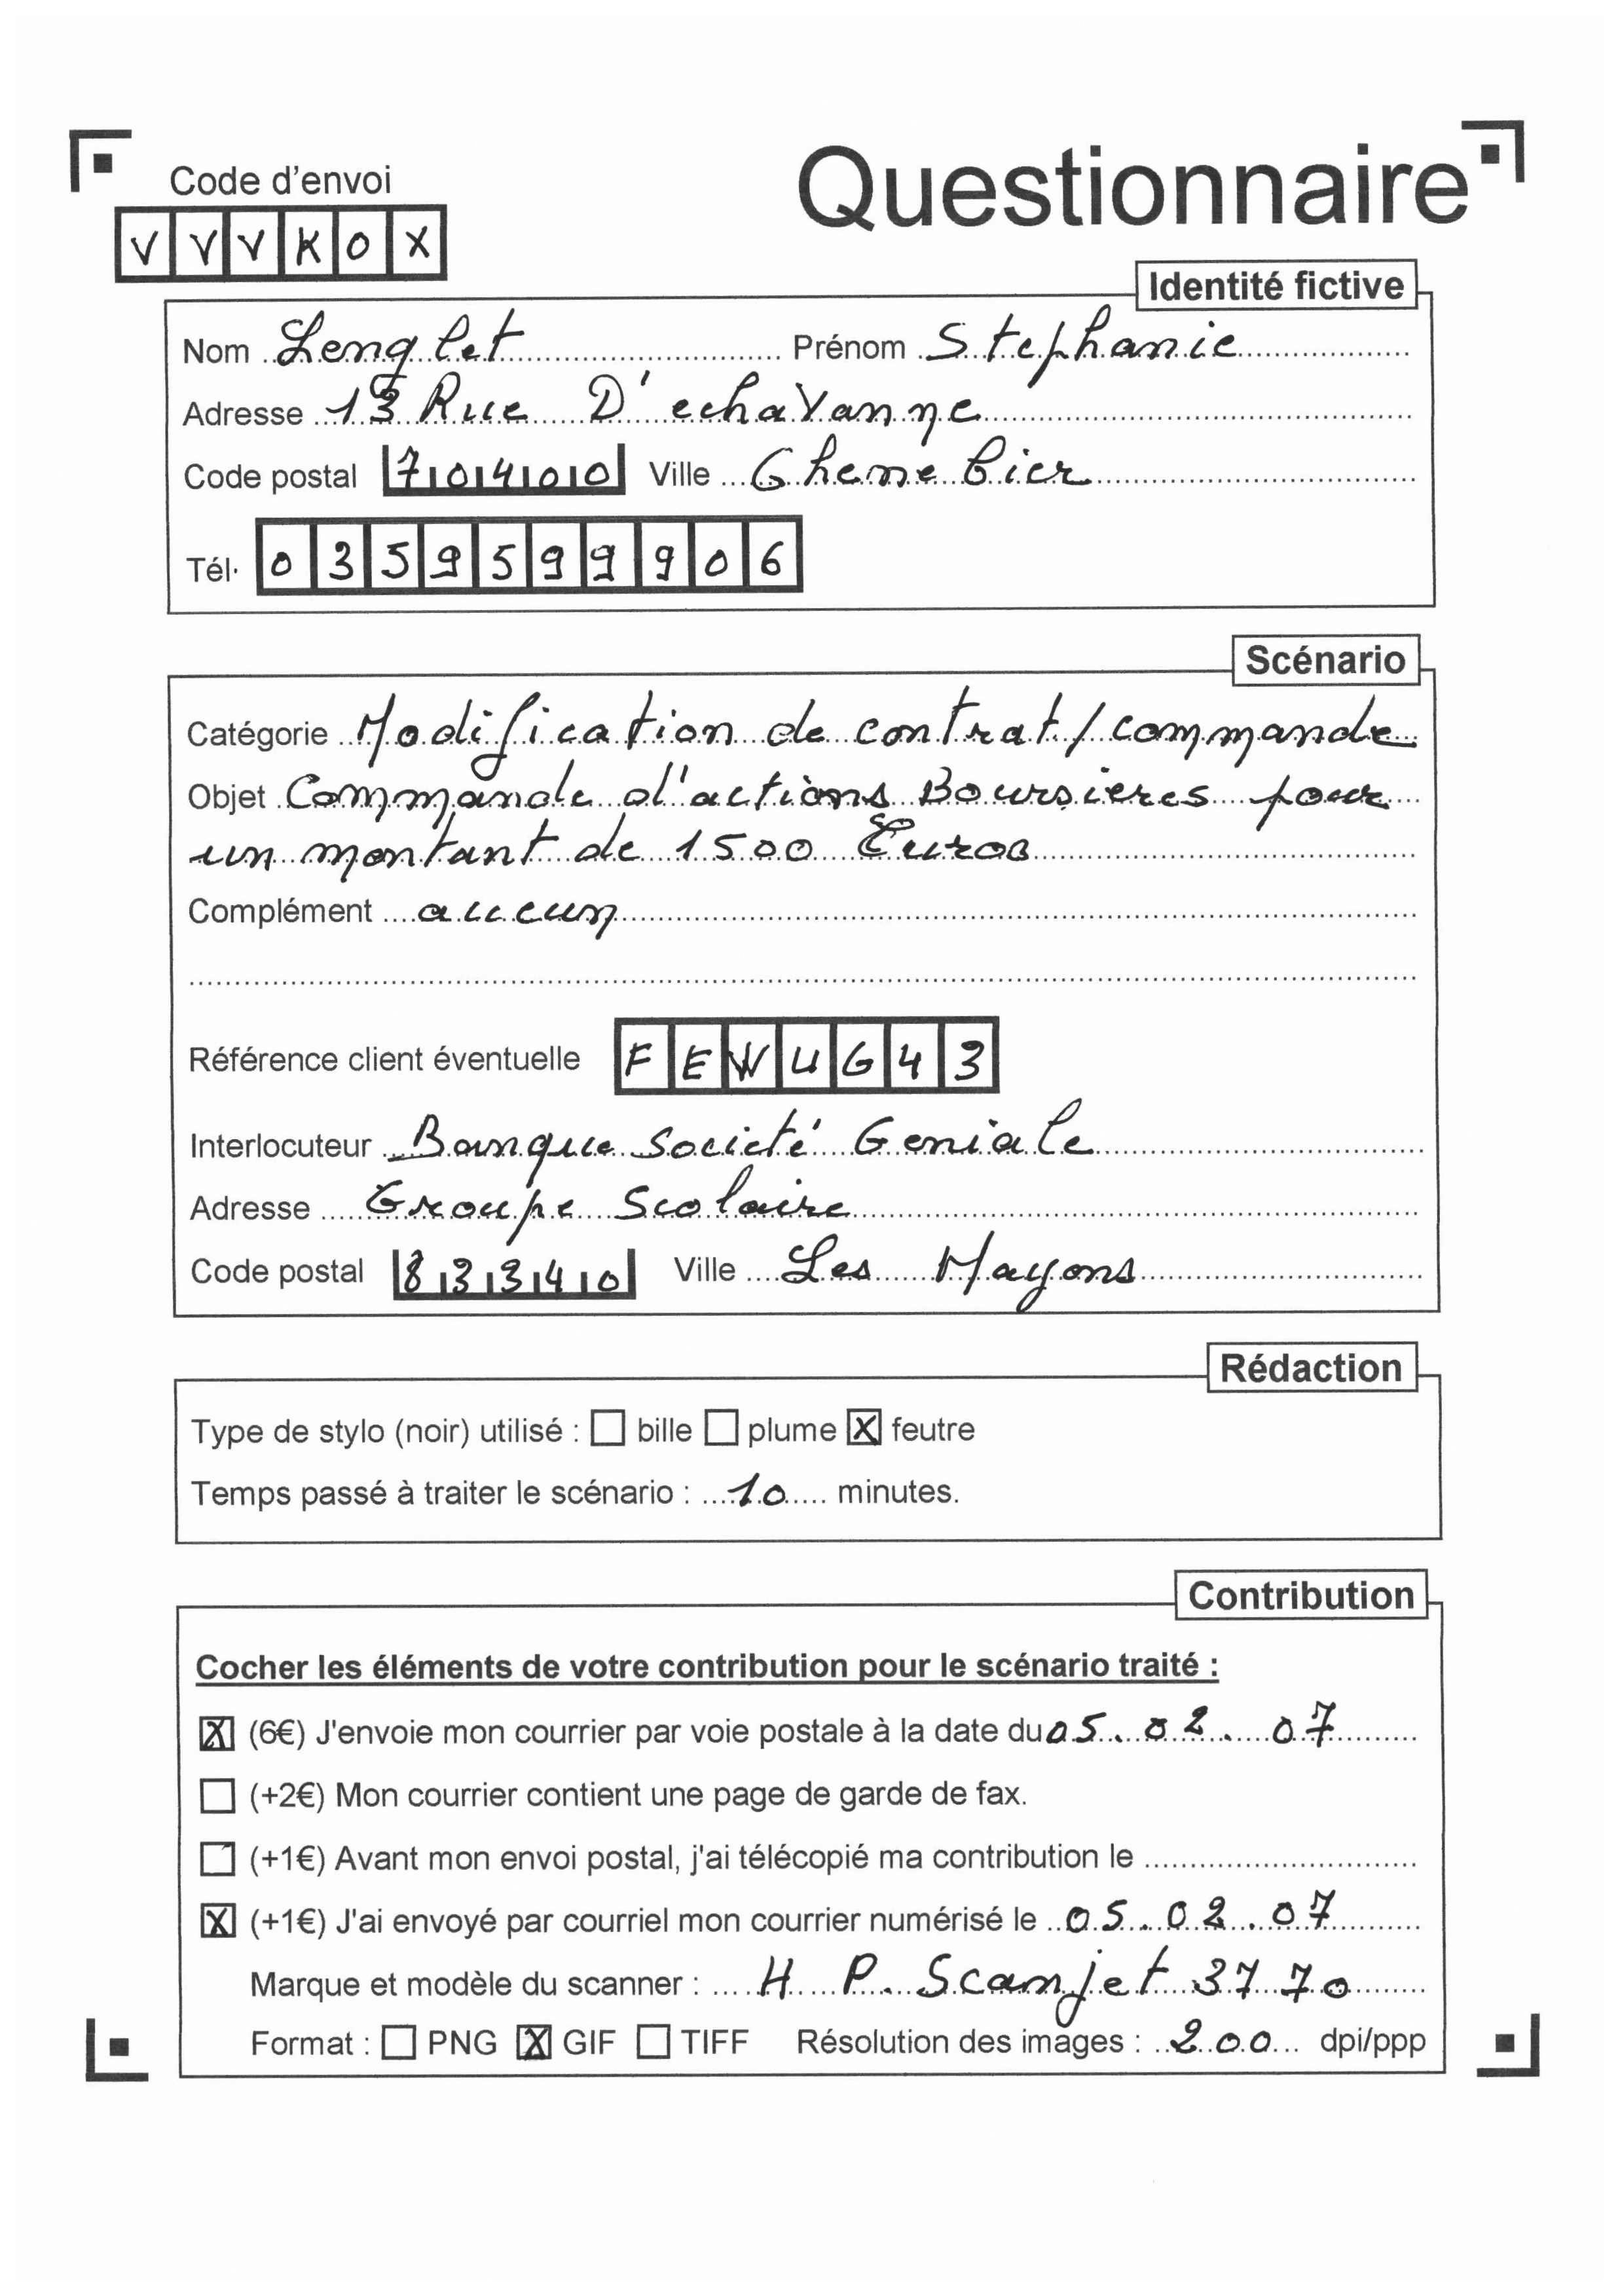 Questionnaire
Code d'envoi
V V V K O X
Identité fictive
Nom Lenglet Prénom Stephanie
Adresse 13 Rue D'echavanne
Code postal 70400 Ville Chenebier
Tél. 0359599906
Scénario
Catégorie Modification de contrat/commande
Objet Commande d'actions Boursieres pour
un montant de 1500 Euros
Complément aucun
Référence client éventuelle FEWUG43
Interlocuteur Banque Societé Geniale
Adresse Groupe Scolaire
Code postal 83340 Ville Les Mayons
Rédaction
Type de stylo (noir) utilisé : ☐ bille ☐ plume ☒ feutre
Temps passé à traiter le scénario : 10 minutes.
Contribution
Cocher les éléments de votre contribution pour le scénario traité :
☒ (6€) J'envoie mon courrier par voie postale à la date du 05.02.07
☐ (+2€) Mon courrier contient une page de garde de fax.
☐ (+1€) Avant mon envoi postal, j'ai télécopié ma contribution le
☒ (+1€) J'ai envoyé par courriel mon courrier numérisé le 05.02.07
Marque et modèle du scanner : H P. Scanjet 3770
Format : ☐ PNG ☒ GIF ☐ TIFF Résolution des images : 200 dpi/ppp